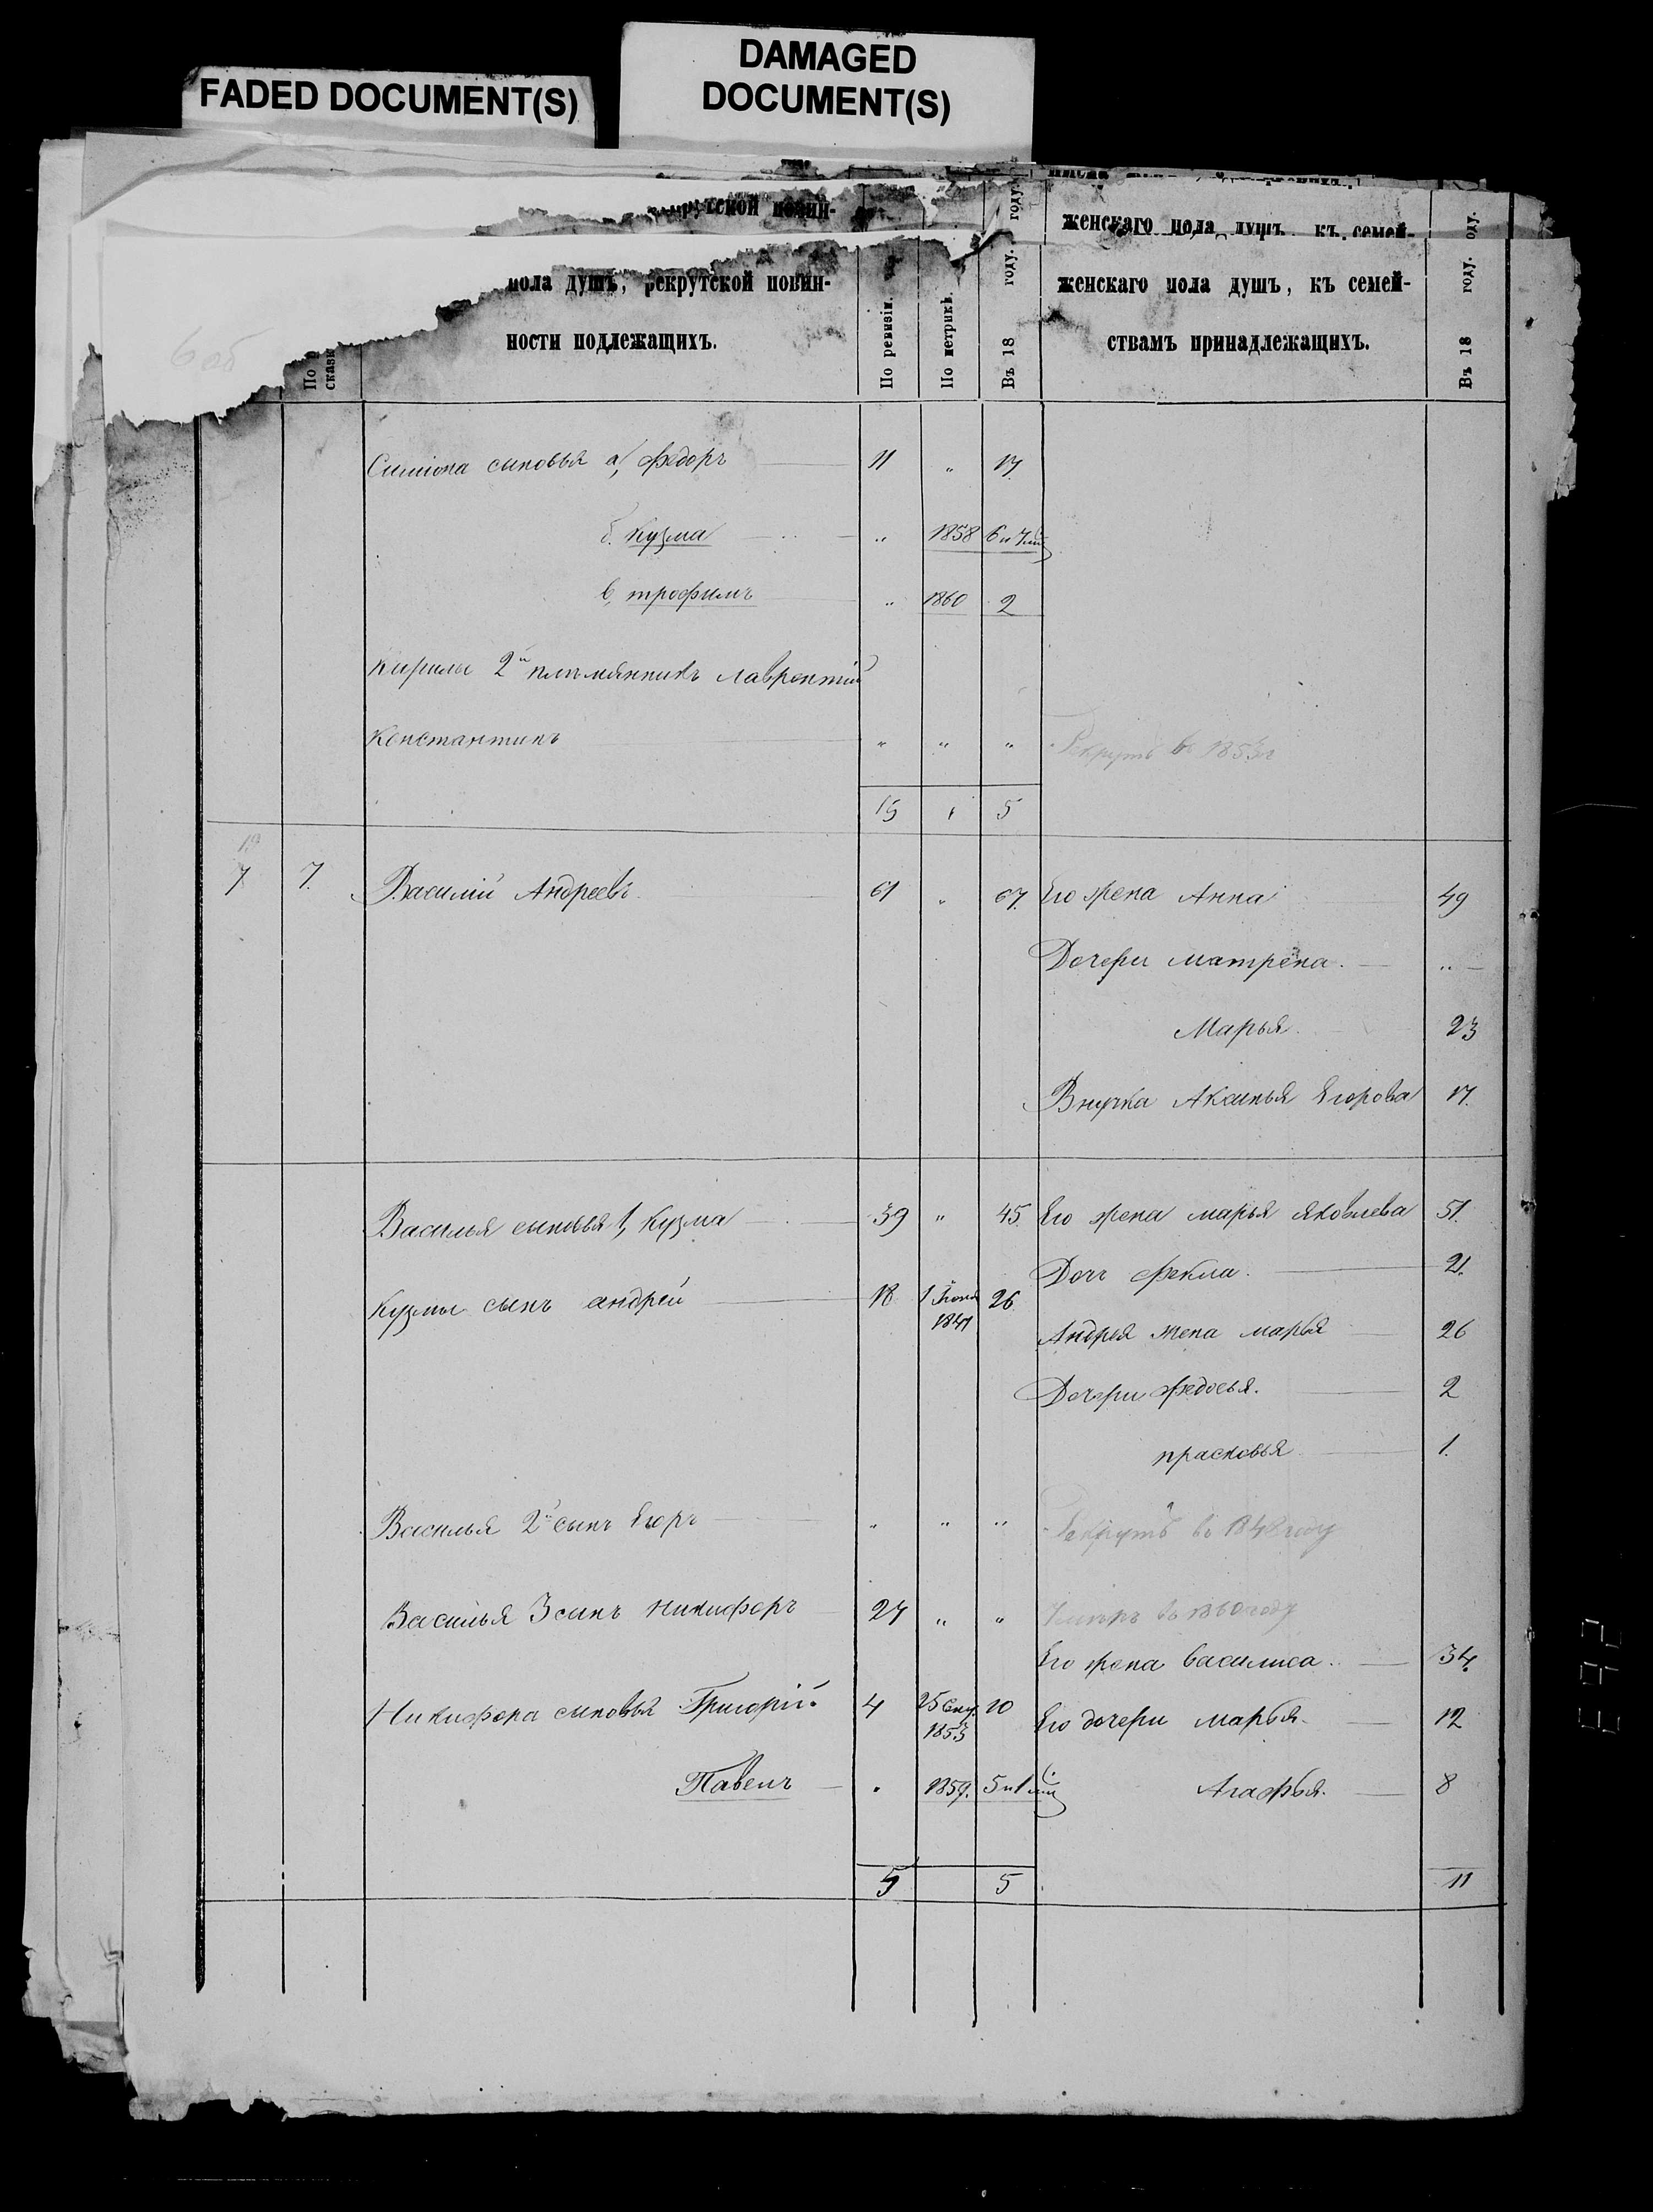 FADED DOCUMENT(S)
DAMAGED
DOCUMENT(S)
рутской повин-
году.
женскаго пола душъ, къ семей-
оду.
пола душъ, рекрутской повин-
ности подлежащихъ.
По
сказк
По ревизіи.
По метрикѣ.
Въ 18 году.
женскаго пола душъ, къ семей-
ствамъ принадлежащихъ.
Въ 18 году.
6 об
Симіона сыновья а, Федоръ 11 " 17.
б. Кузма " 1858 6 и 7 м
в, трофимъ " 1860 2
Кирилы 2й племянникъ Лаврентій
Константинъ " " " Рекрутъ въ 1853 г
15 1 5
7 7. Василій Андреевъ 61 " 67. Его жена Анна 49
Дочери матрена. "
Марья. 23
Внучка Аксинья Егорова 17.
Василья сыновья 1, Кузма 39 " 45. Его жена марья яковлева 51.
Дочь Фекла. 21.
Кузмы сынъ андрей 18 1 1841 26
Андрея жена марья 26
Дочери Федосья. 2
прасковья 1.
Василья 2й сынъ Егоръ " " " Рекрутъ въ 1848 году
Василья 3 сынъ никифоръ 27 " " Умеръ въ 1860 году
Его жена василиса. 34.
Никифора сыновья Григорій. 4 25 1853 10 Его дочери марья. 12
Павелъ " 1859. 5 и 1 м Агафья. 8
5 5 11